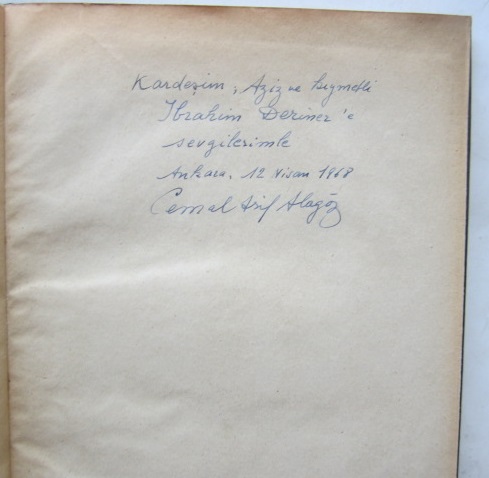 Kardeşim, Aziz ve kıymetli
İbrahim Deriner'e
sevgilerimle
Ankara, 12 Nisan 1968
Cemal Arif Alagöz